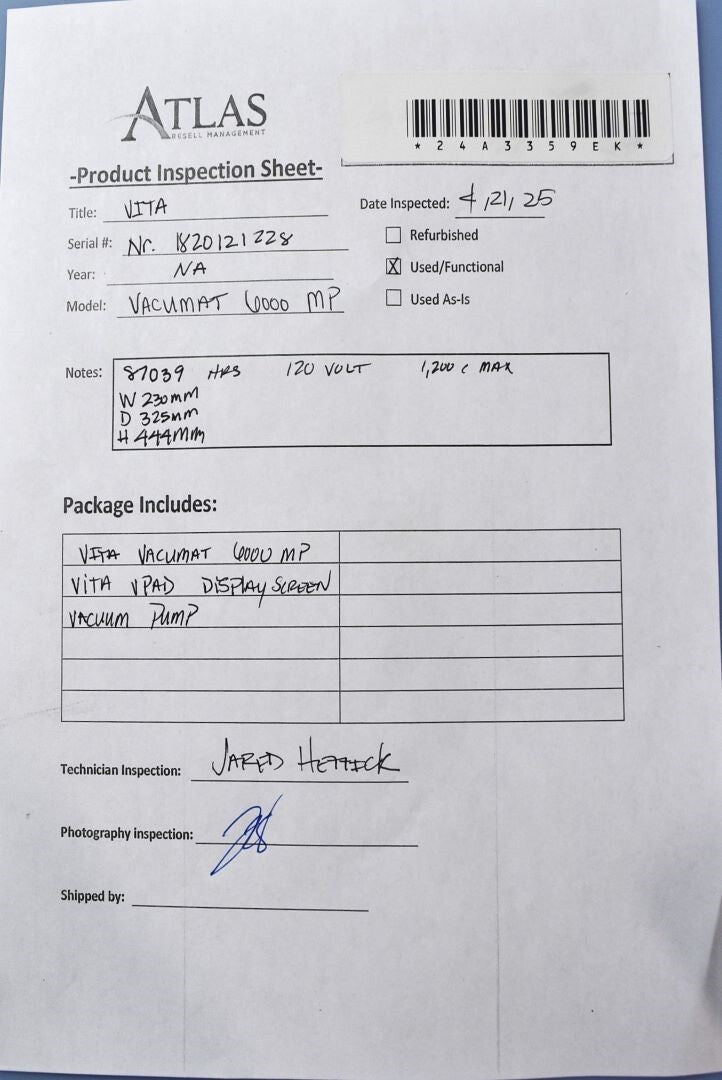 ATLAS
RESELL MANAGEMENT
*24A3359EK*
-Product Inspection Sheet-
Title: VITA
Date Inspected: 4/21/25
Serial #: Nr. 1820121228
Refurbished
Year: NA
X Used/Functional
Model: VACUMAT 6000 MP
Used As-Is
Notes: 87039 HRS 120 VOLT 1,200 C MAX
W 230mm
D 325mm
H 444mm
Package Includes:
VITA VACUMAT 6000 MP
VITA VPAD DISPLAY SCREEN
VACUUM PUMP
Technician Inspection: JARED HETTICK
Photography inspection:
Shipped by: